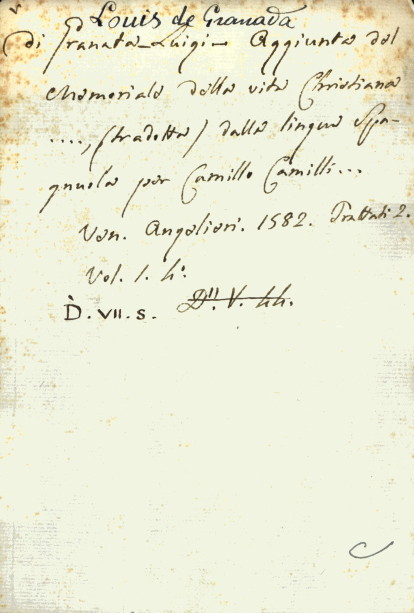 Louis de Granada
di Granata Luigi - Aggiunta del
Memoriale della vita Christiana
...., (tradotta) dalla lingua Spa-
gnuola per Camillo Camilli...
Ven. Angelieri. 1582. Trattati 2.
Vol. 1. 4°.
D. VII. S. D". V. 44.